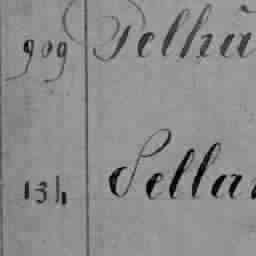 909 Pelhů
134 Sellar